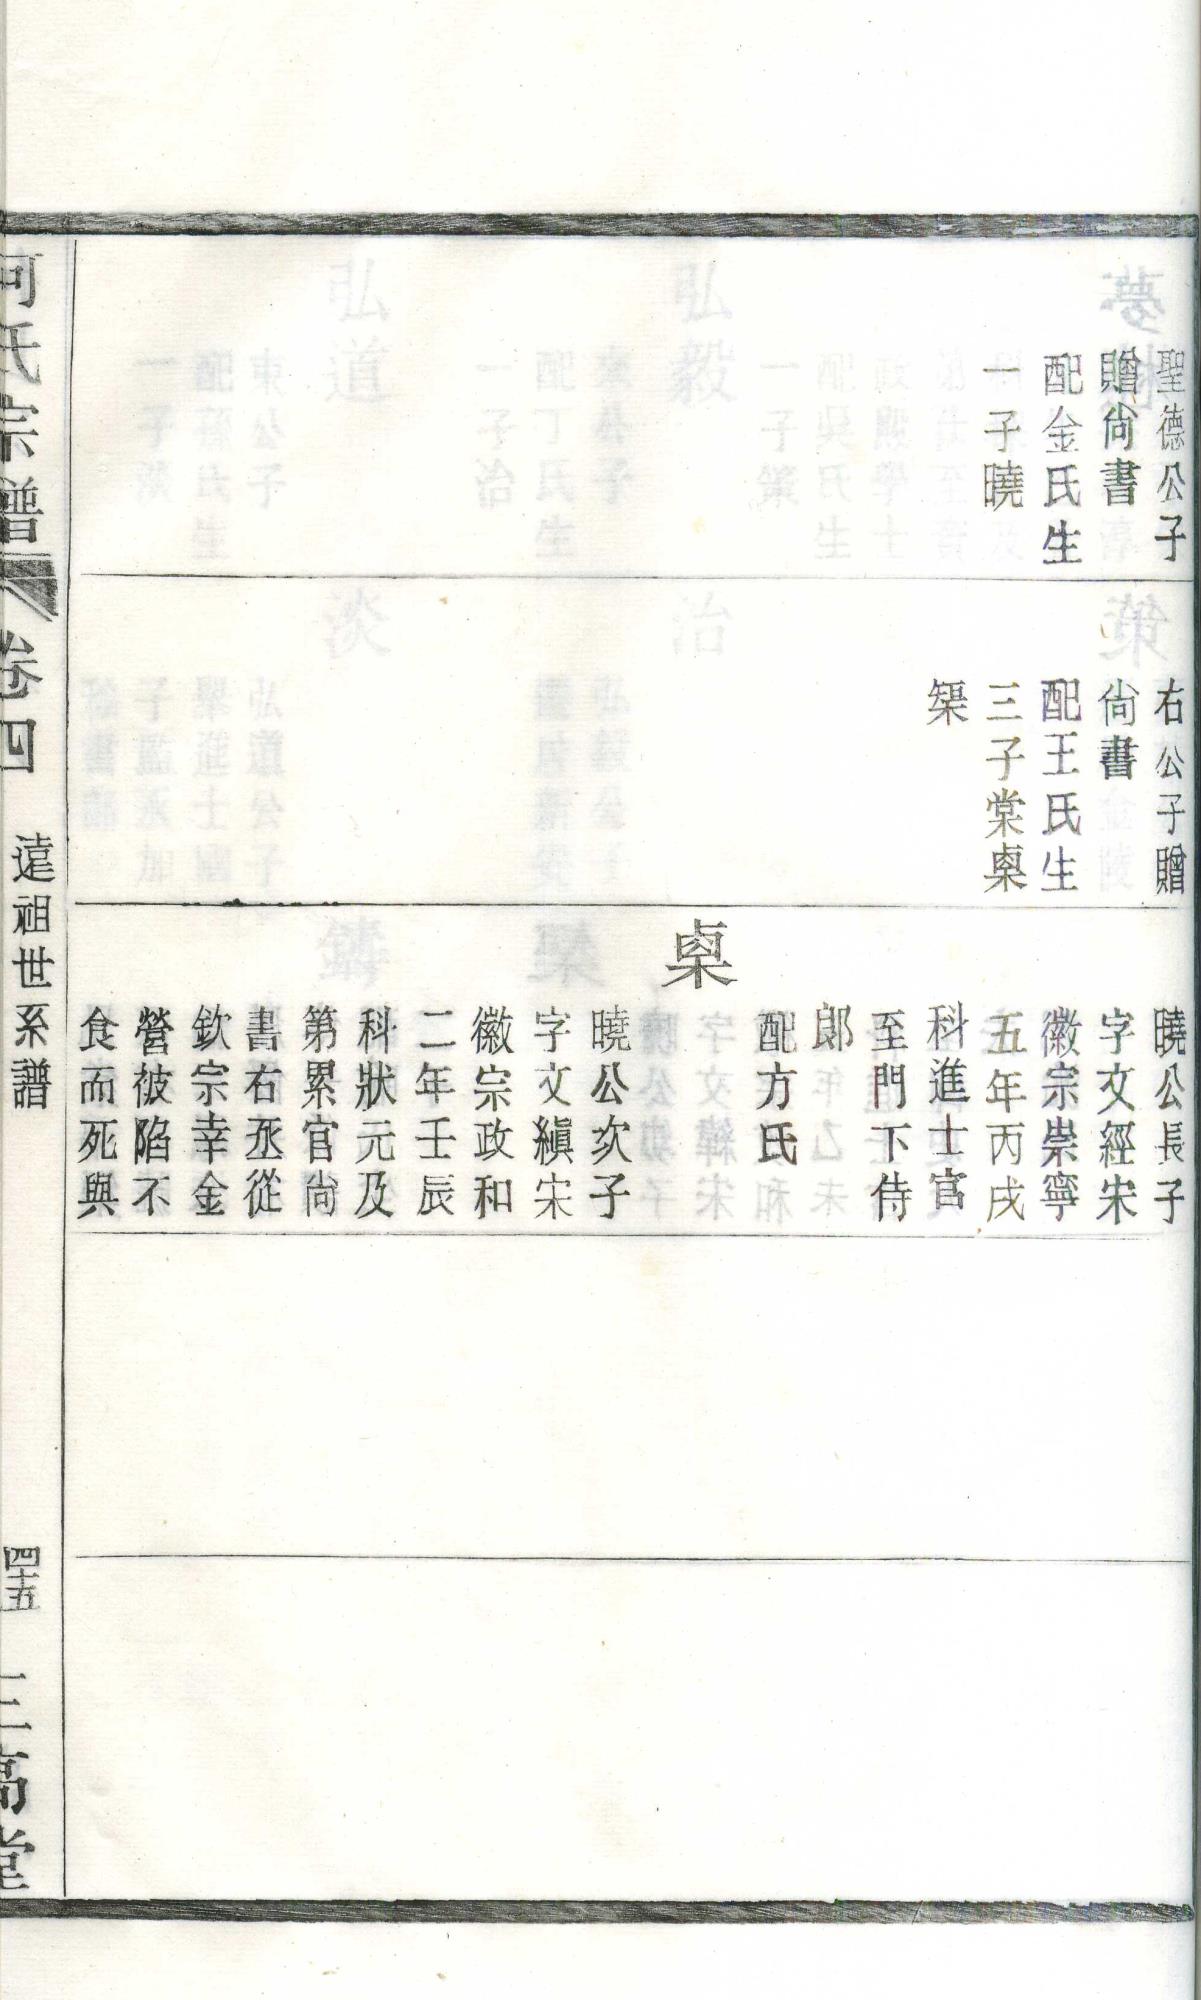 聖德公子
贈尙書
配金氏生
一子曉
右公子贈
尙書
配王氏生
三子棠㮚
榘
曉公長子
字文經宋
徽宗崇寧
五年丙戌
科進士官
至門下侍
郞
配方氏
㮚
曉公次子
字文縝宋
徽宗政和
二年壬辰
科狀元及
第累官尙
書右丞從
欽宗幸金
營被陷不
食而死與
何氏宗譜
卷四
遠祖世系譜
四十五
三高堂